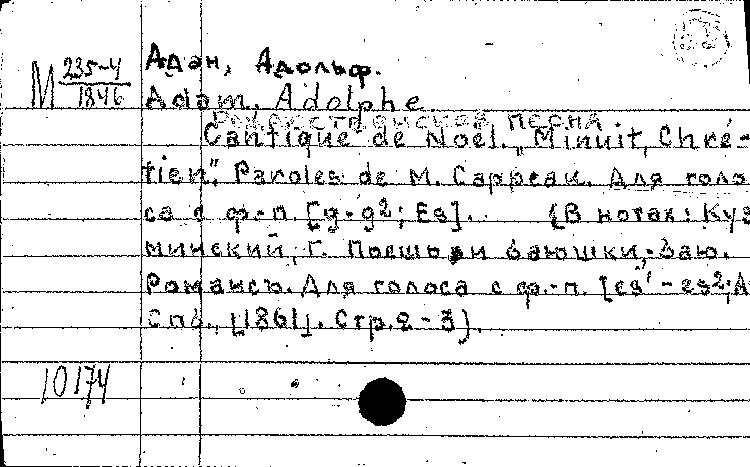 М 235-4
1846
Адан, Адольф.
Adam, Adolphe
Рождественская песня
Cantique de Noël. „Minuit, Chré-
tien". Paroles de M. Cappeau. Для голо
са с ф.-п. [g-g²; Es]. [В нотах: Куз
минский, Г. баюшки,-баю.
Романсъ. Для голоса с ф.-п. [es¹-es²; A
Спб., [1861]. Стр. 2-3].
10174